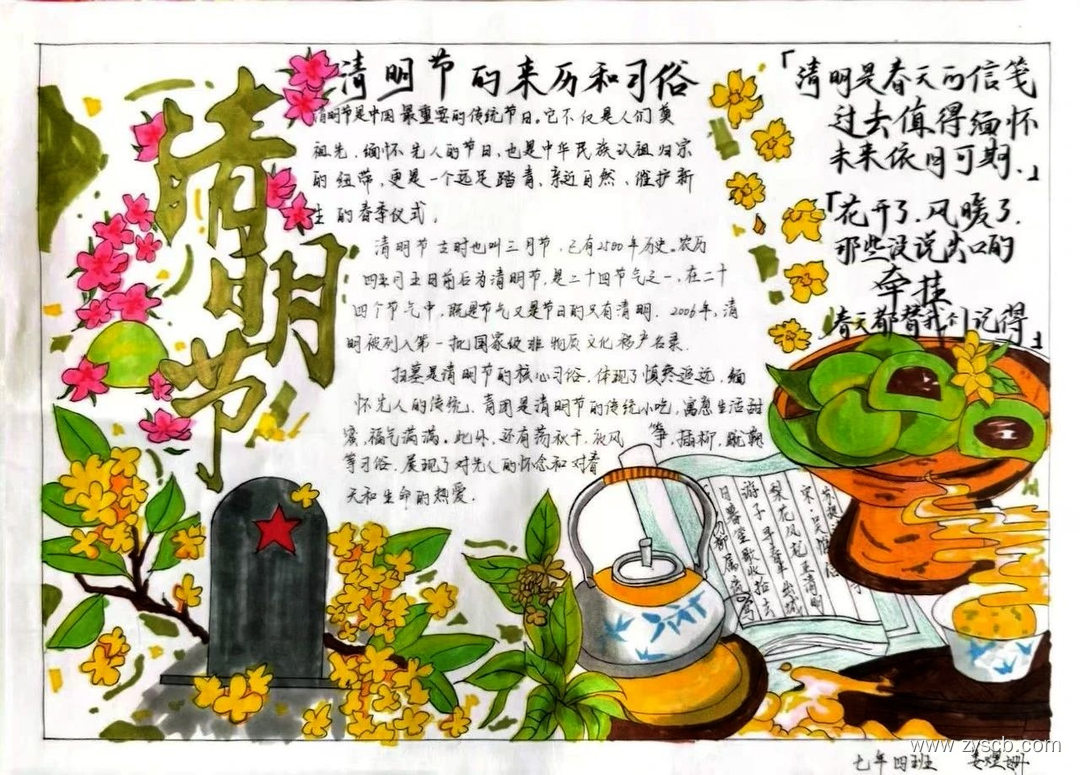 清明节
清明节的来历和习俗
清明节是中国最重要的传统节日。它不仅是人们奠
祖先、缅怀先人的节日,也是中华民族认祖归宗
的纽带,更是一个远足踏青、亲近自然、催护新
生的春季仪式。
清明节古时也叫三月节,已有2500年历史。农历
四五月五日前后为清明节,是二十四节气之一,在二十
四个节气中,既是节气又是节日的只有清明。2006年,清
明被列入第一批国家级非物质文化遗产名录.
扫墓是清明节的核心习俗,体现了慎终追远,缅
怀先人的传统。青团是清明节的传统小吃,寓意生活甜
蜜,福气满满。此外,还有荡秋千,放风筝,插柳,
等习俗,展现了对先人的怀念和对春
天和生命的热爱.
「清明是春天的信笺
过去值得缅怀
未来依旧可期.」
「花开了,风暖了,
那些没说出口的
牵挂
春天都替我们记得」
苏堤清明
宋·吴惟信
梨花风起正清明
游子寻春半出城
日暮笙歌收拾去
属流莺
七年四班
www.zyscb.com